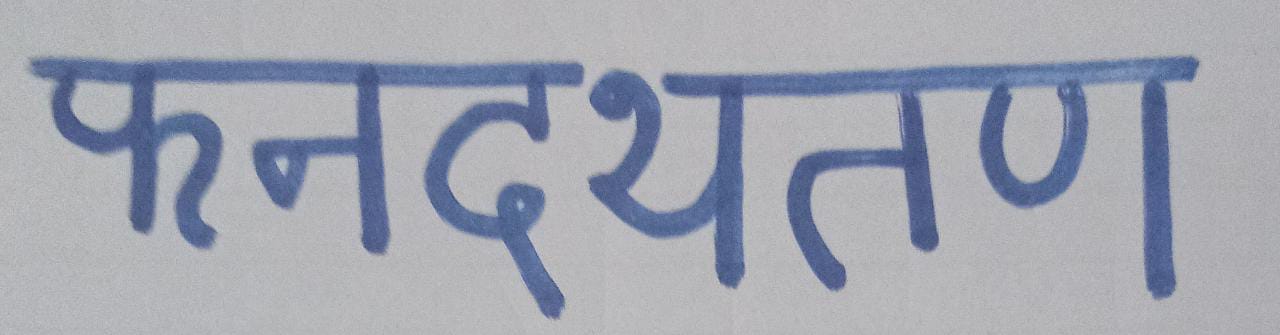 फनदथतण